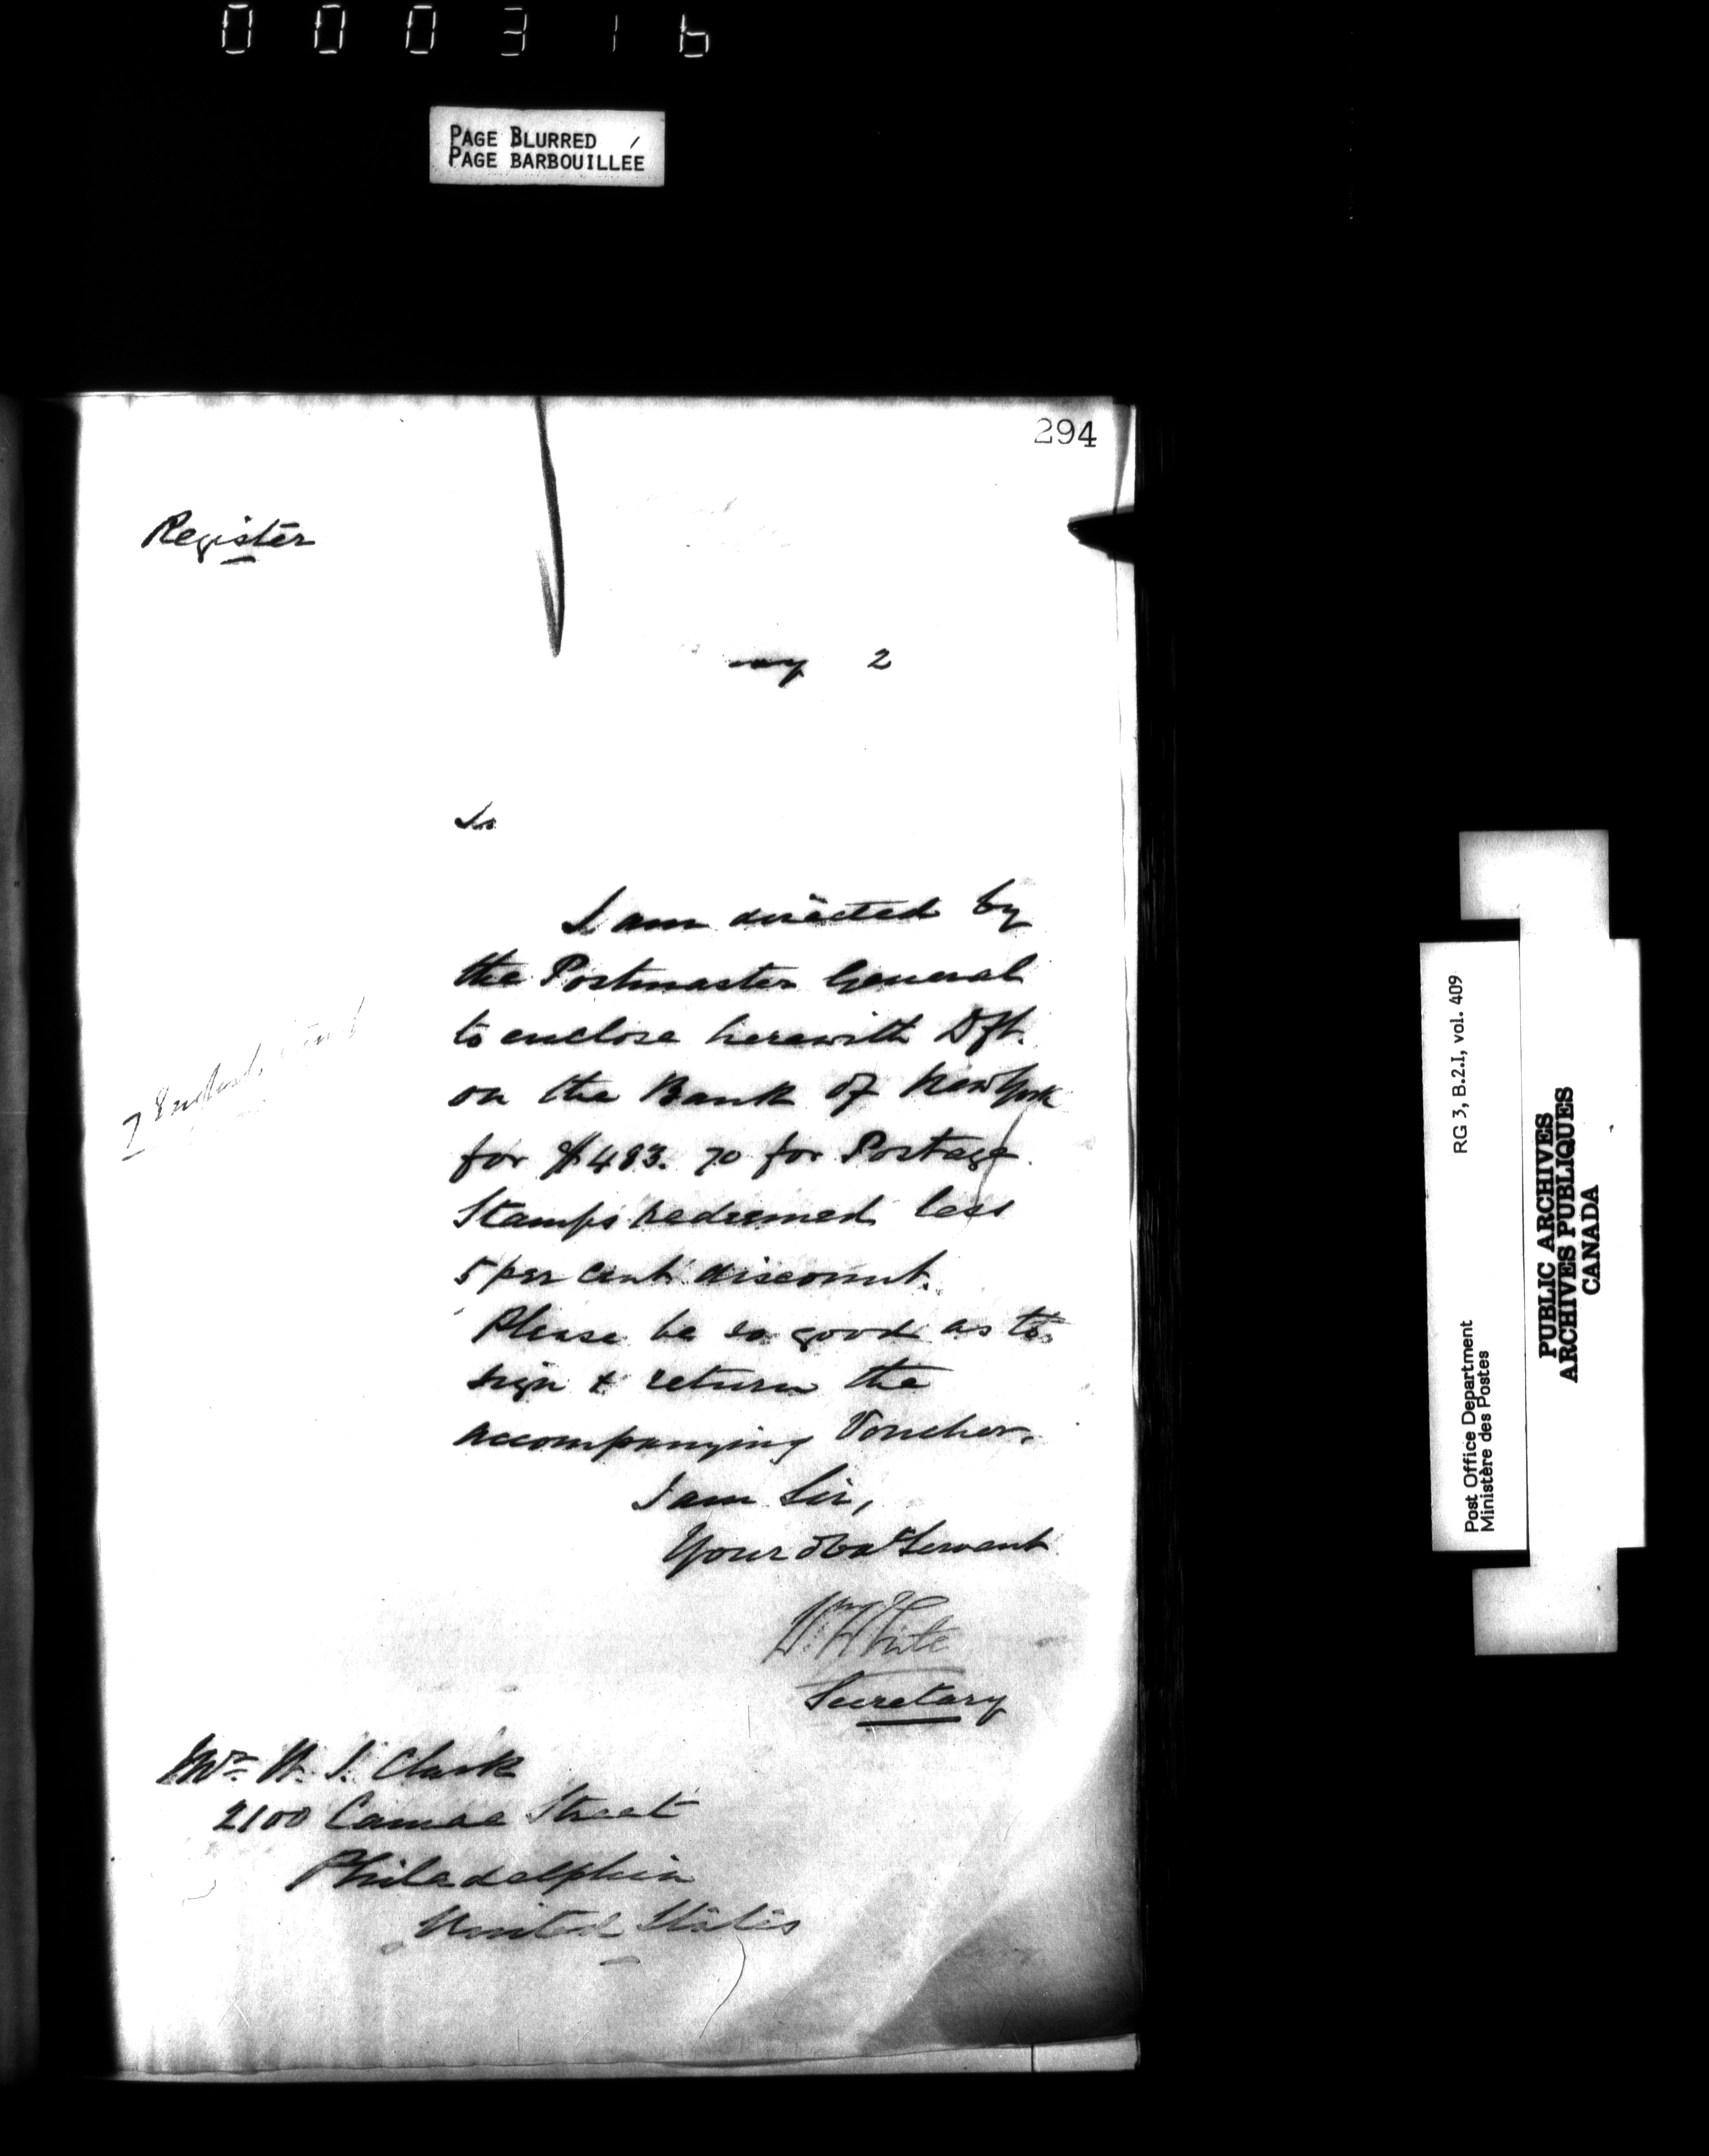 000316
PAGE BLURRED
PAGE BARBOUILLÉE
294
Register
2
Sir
I am directed by
the Postmaster General
to enclose herewith Dft.
on the Bank of New York
for $483.70 for Postage
Stamps redeemed less
5 per cent discount.
Please be so good as to
sign & return the
accompanying Voucher.
I am Sir,
Your Obdt Servant
Wm White
Secretary
Mr. H. J. Clark
2100 Camac Street
Philadelphia
United States
RG 3, B.2.I, vol. 409
Post Office Department
Ministère des Postes
PUBLIC ARCHIVES
ARCHIVES PUBLIQUES
CANADA